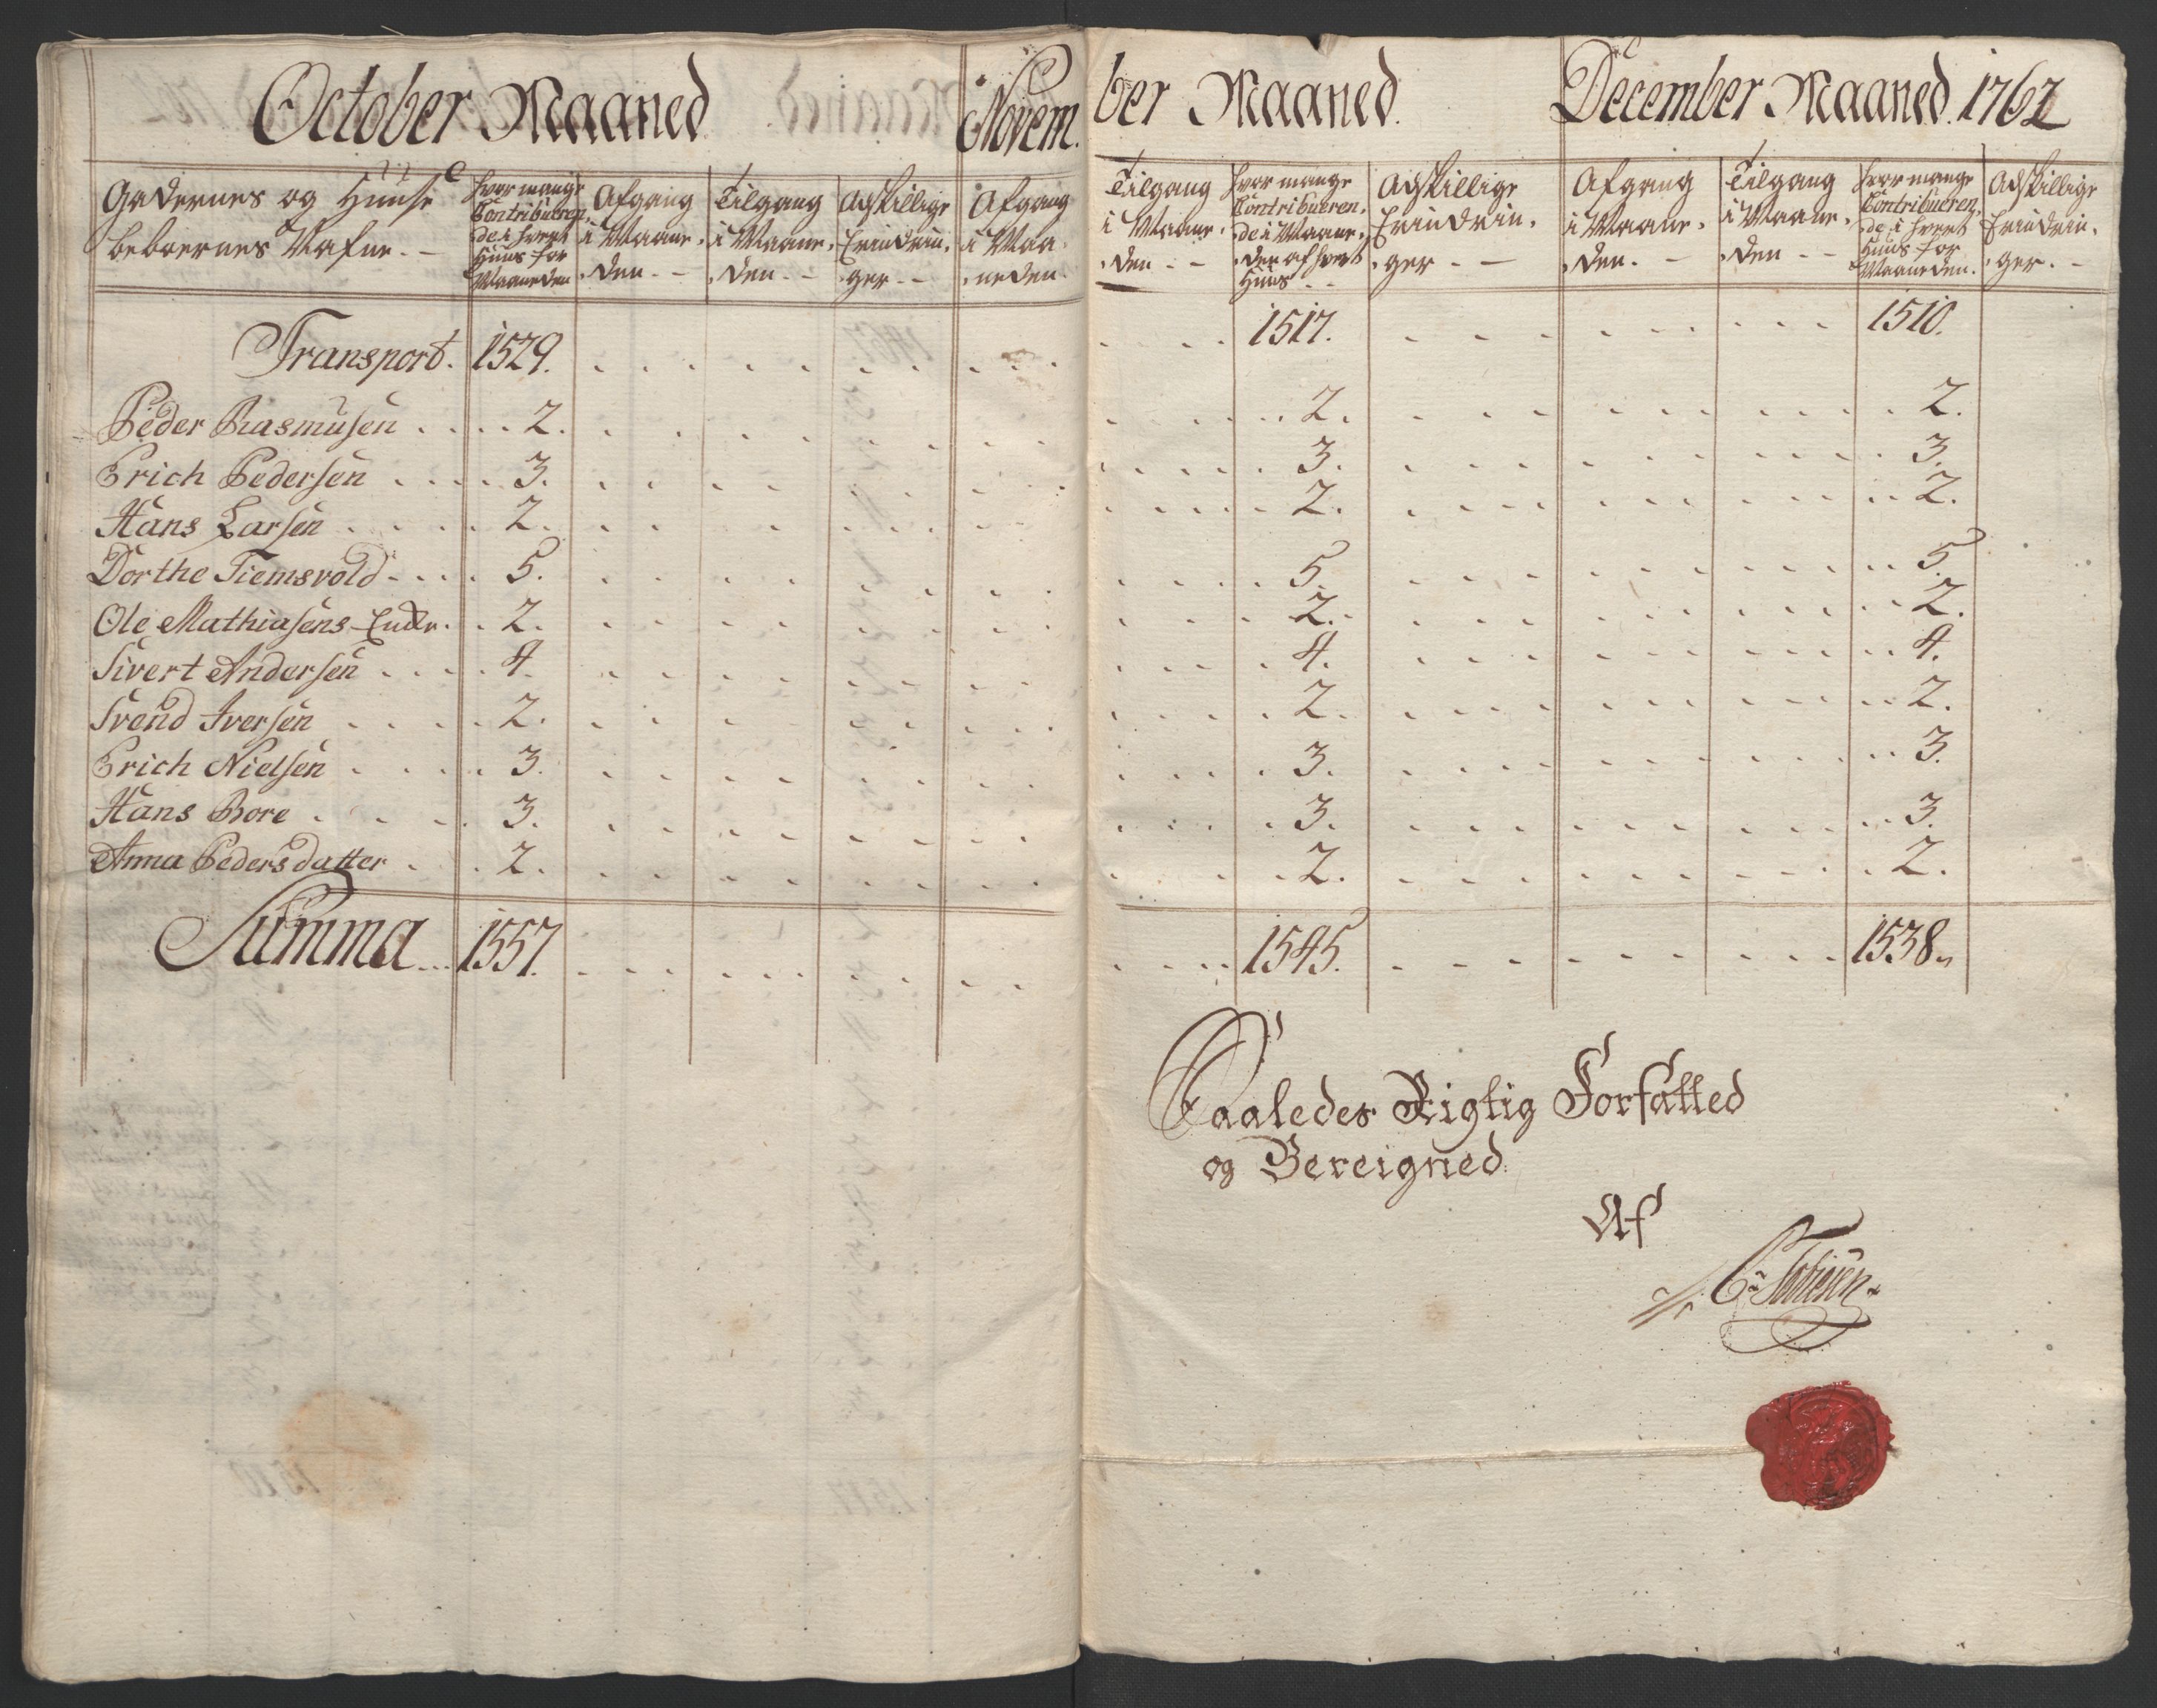 October Maaned Novem
ber Maaned. December Maaned. 1762
Gadernes og Huuse
beboernes Nafne. -
hvor mange
Contribueren,
de i hvert
Huus for
Maaneden
Afgang
i Maane,
den. -
Tilgang
i Maane,
den. -
Adskillige
Erindrin,
ger - -
Afgang
i Maa,
neden.
Tilgang
i Maane,
den - -
hvor mange
Contribueren,
de i Maane,
den af hvert
Huus. -
Adskillige
Erindrin,
ger - -
Afgang
i Maane,
den. -
Tilgang
i Maane,
den - -
hvor mange
Contribueren,
de i hvert
Huus for
Maaneden.
Adskillige
Erindrin,
ger. -
Transport. 1529. 1517. 1510.
Peder Rasmusen 2. 2. 2.
Erich Pedersen 3. 3. 3.
Hans Larsen 2. 2. 2.
Dorthe Tiemsvold 5. 5. 5.
Ole Mathiasens Enke 2. 2. 2.
Sivert Andersen 4. 4. 4.
Svend Iversen 2. 2. 2.
Erich Nielsen 3. 3. 3.
Hans Bore 3. 3. 3.
Anna Pedersdatter 2. 2. 2.
Summa 1557. 1545. 1538.
Saaledes Rigtig Forfatted
og Bereigned
Af